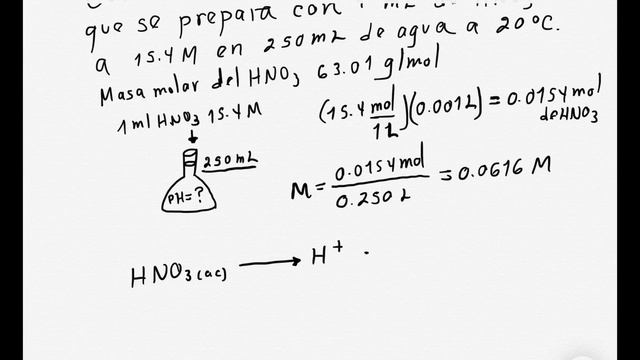 que se prepara con 1 mL
a 15.4 M en 250 mL de agua a 20°C.
Masa molar del HNO3 63.01 g/mol
1 ml HNO3 15.4 M
(15.4 mol/1L)(0.001L) = 0.0154 mol
de HNO3
250 mL
PH=?
M = 0.0154 mol/0.250 L = 0.0616 M
HNO3(ac) → H+